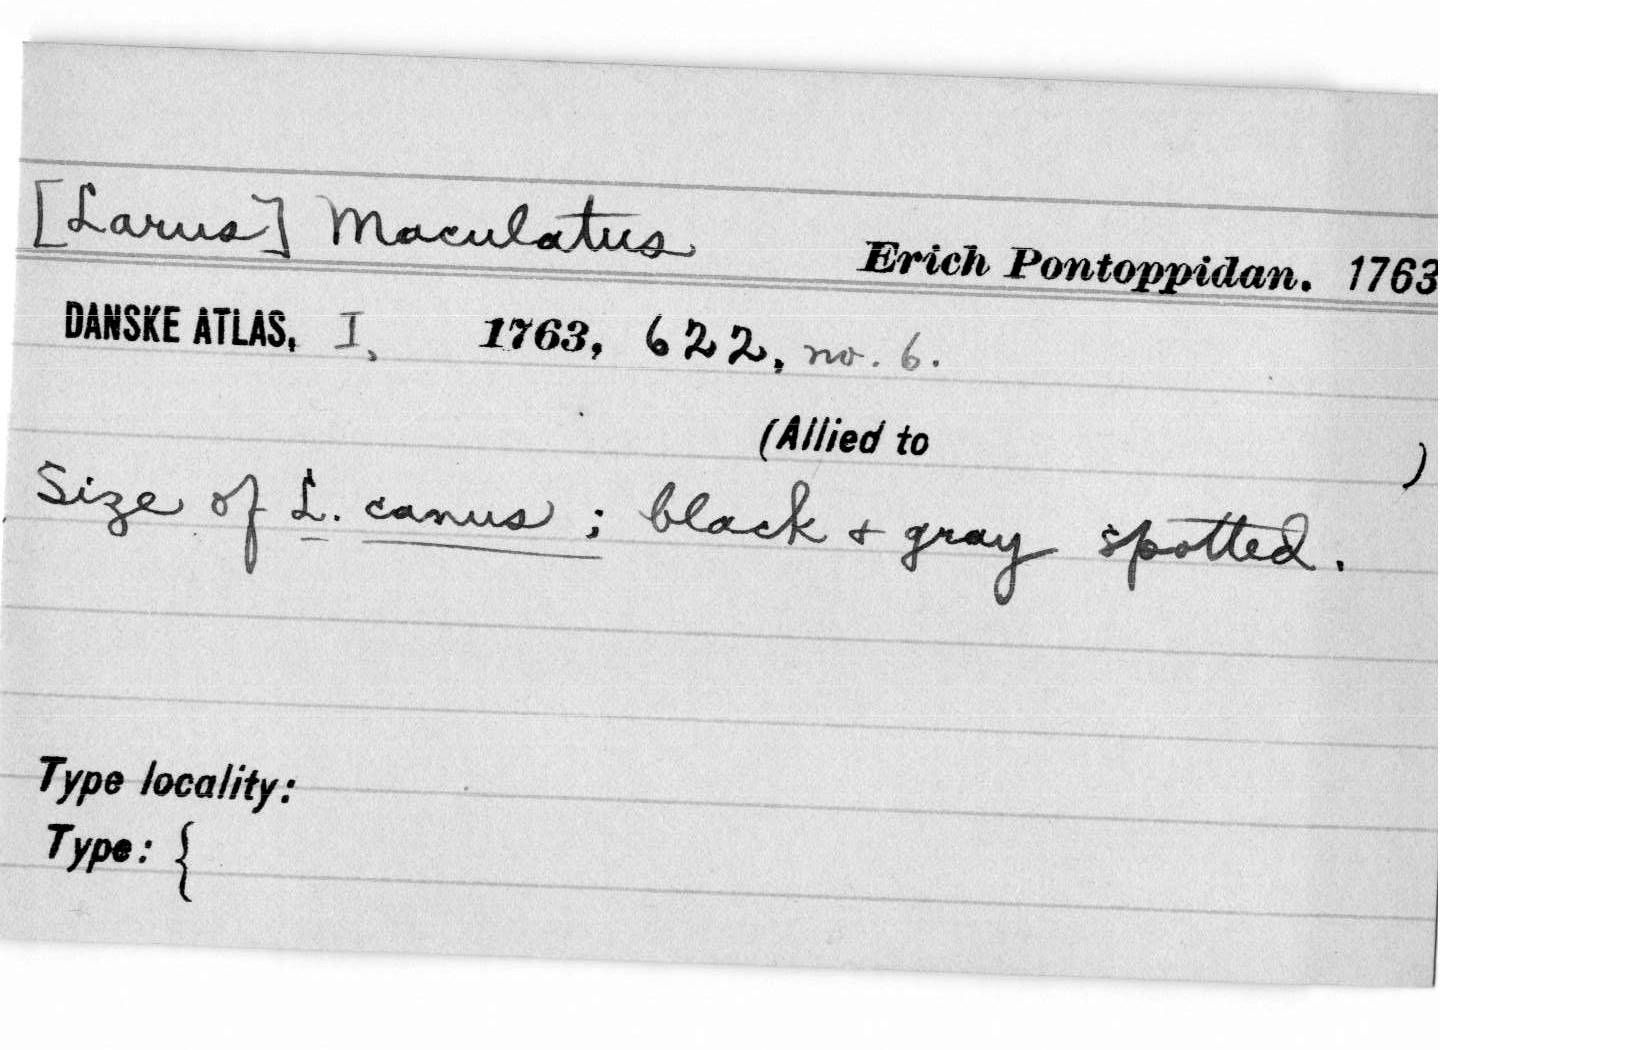 [Larus] Maculatus
Erich Pontoppidan. 1763
DANSKE ATLAS, I, 1763, 622, no. 6.
(Allied to )
Size of L. canus; black & gray spotted.
Type locality:
Type: {